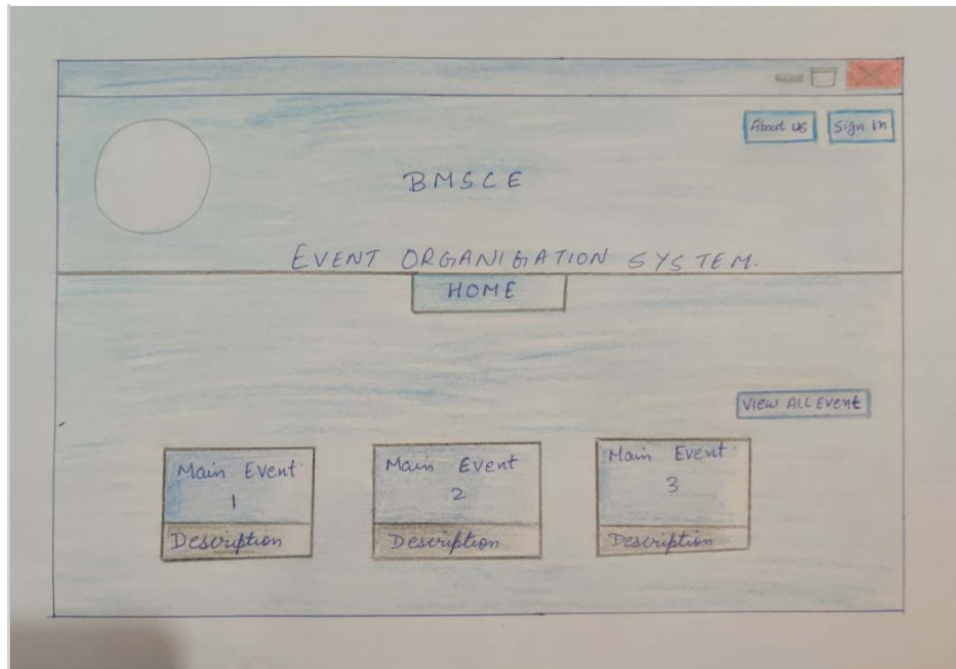 About us
Sign In
BMSCE
EVENT ORGANIGATION SYSTEM.
HOME
View ALL Event
Main Event
1
Description
Main Event
2
Description
Main Event
3
Description